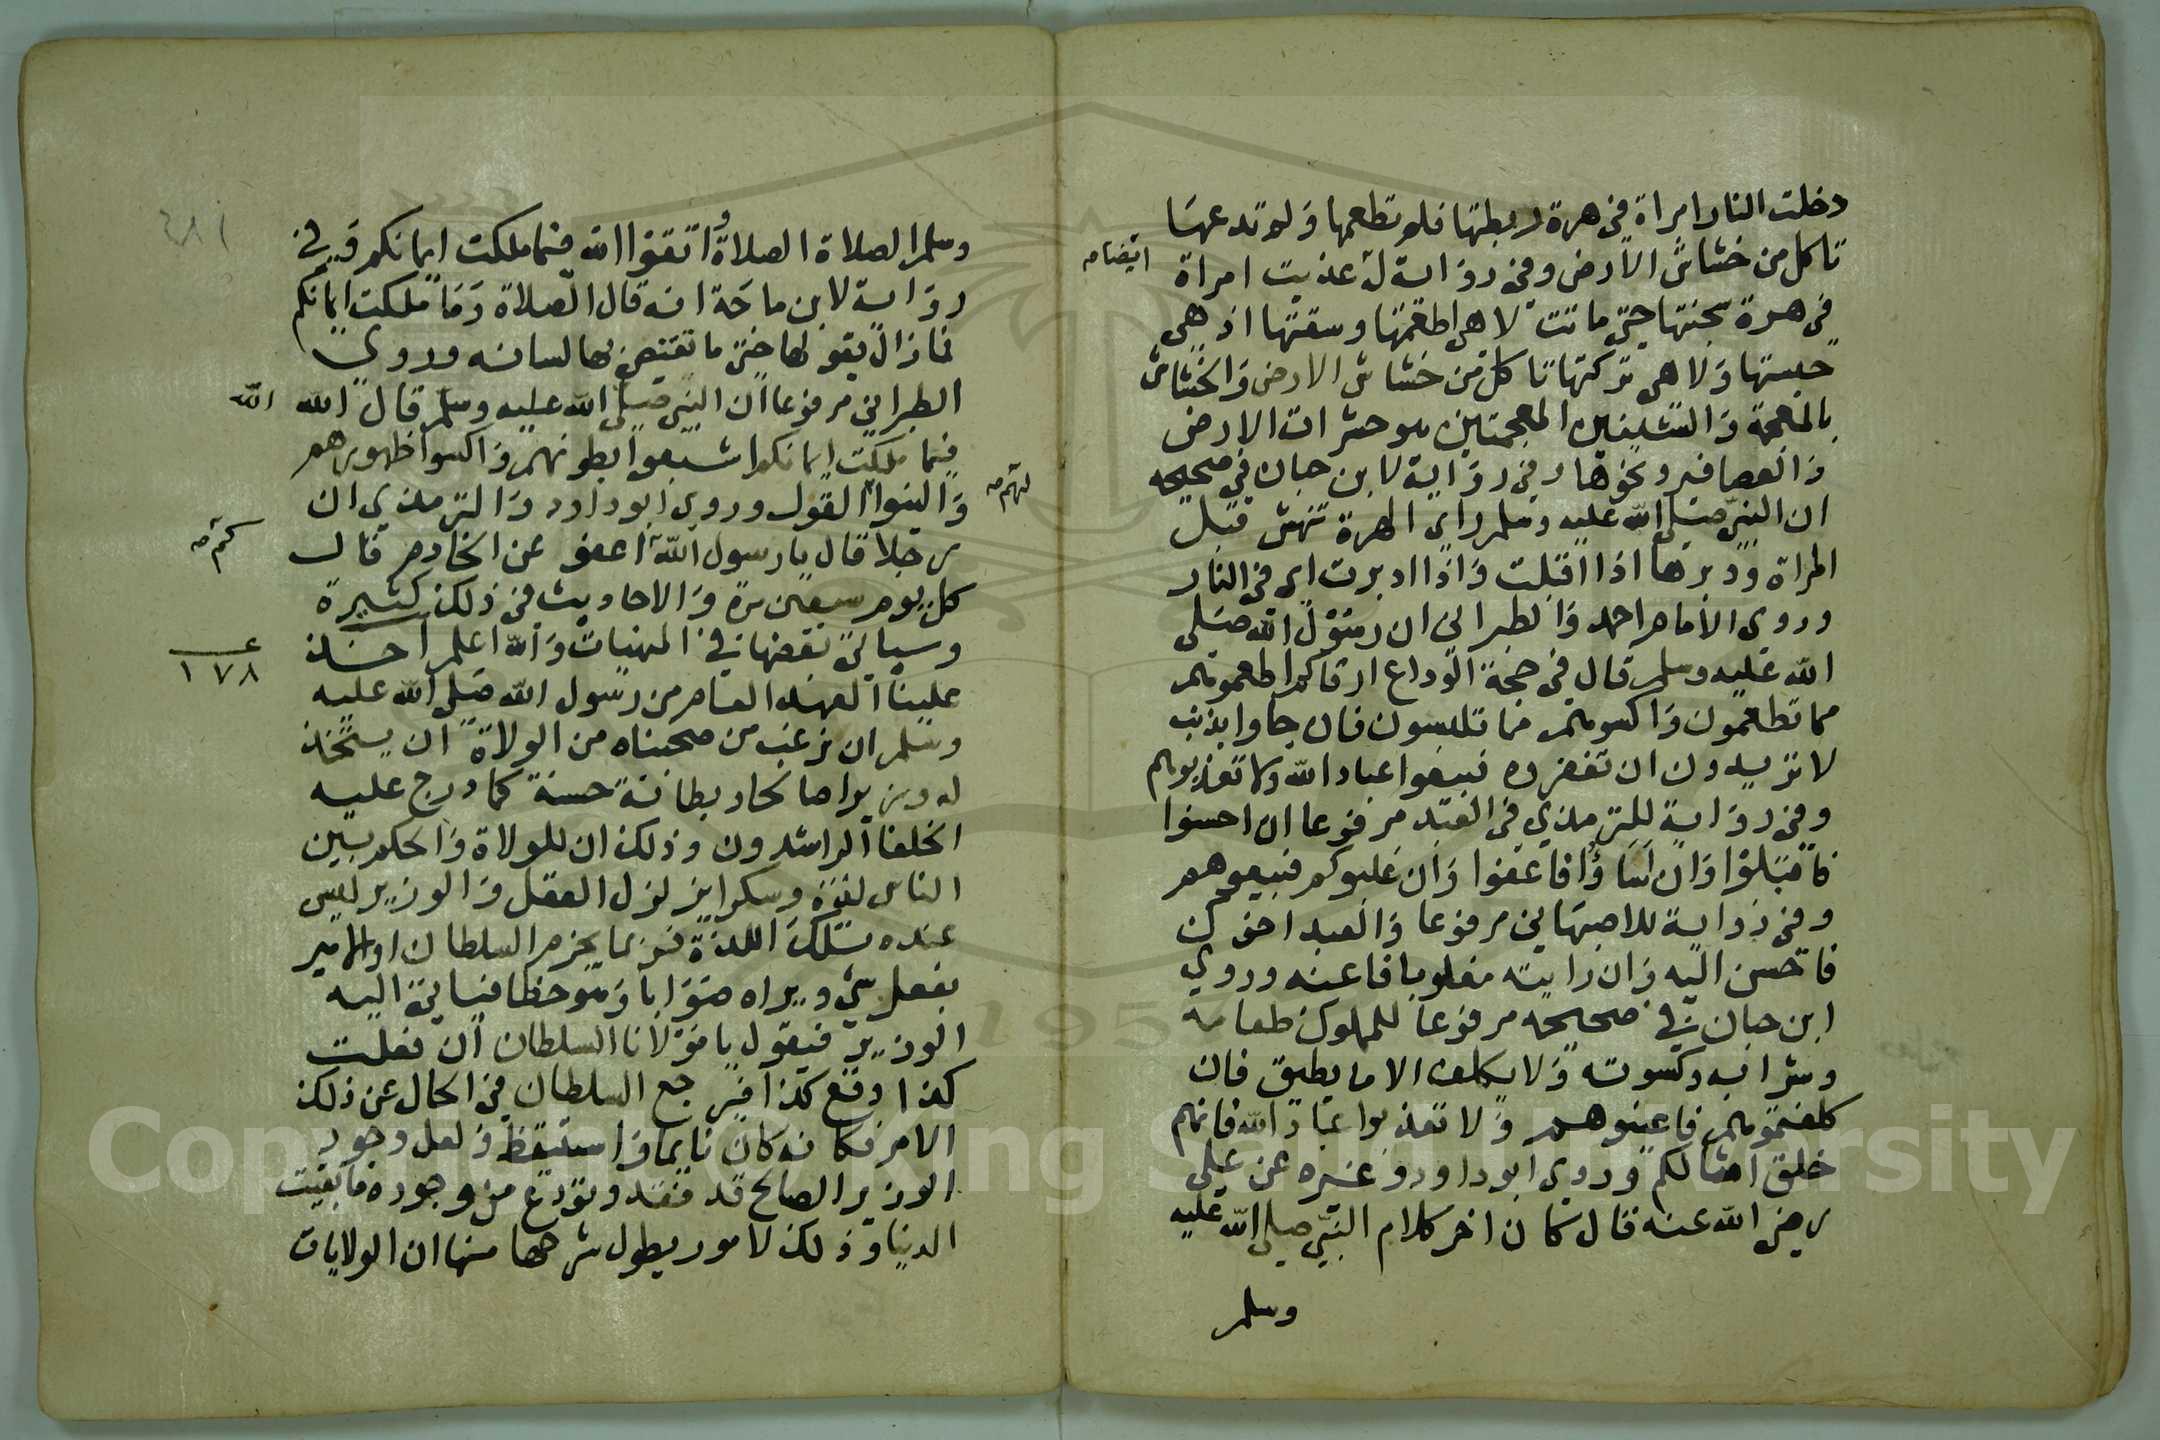 دخلت النار امراة في هرة ربطتها فلم تطعمها ولم تدعها
تاكل من خشاش الارض وفي رواية له عذبت امراة
ايضا صه
في هرة سجنتها حتى ماتت لا هي اطعمتها وسقتها اذ هي
حبستها ولا هي تركتها تاكل من خشاش الارض والخشاش
بالمعجمة والشينين المعجمتين هو حشرات الارض
والعصافير ونحوها وفي رواية لابن حبان في صحيحه
ان النبي صلى الله عليه وسلم راى الهرة تنهش قبل
المراة ودبرها اذا اقبلت واذا ادبرت اي في النار
وروى الامام احمد والطبراني ان رسول الله صلى
الله عليه وسلم قال في حجة الوداع ارقاكم اطعموهم
مما تطعمون واكسوهم مما تلبسون فان جاوا بذنب
لا تريدون ان تغفروه فبيعوا عباد الله ولا تعذبوهم
وفي رواية للترمذي في العبد مرفوعا ان احسنوا
فاقبلوا وان اساؤا فاعفوا وان غلبوكم فبيعوهم
وفي رواية للاصبهاني مرفوعا والعبد اخوك
فاحسن اليه وان رايته مغلوبا فاعنه وروى
ابن حبان في صحيحه مرفوعا للمملوك طعامه
وشرابه وكسوته ولا يكلف الا ما يطيق فان
كلفتموهم فاعينوهم ولا تعذبوا عباد الله فانهم
خلق امثالكم وروى ابو داود وغيره عن علي
رضي الله عنه قال كان اخر كلام النبي صلى الله عليه
وسلم
وسلم الصلاة الصلاة واتقوا الله فيما ملكت ايمانكم وفي
رواية لابن ماجة انه قال الصلاة وما ملكت ايمانكم
فما زال يقولها حتى ما تقبض بها لسانه وروى
الطبراني مرفوعا ان النبي صلى الله عليه وسلم قال الله الله
فيما ملكت ايمانكم اشبعوا بطونهم واكسوا ظهورهم
والينوا القول وروى ابو داود والترمذي ان
لهم صه
رجلا قال يا رسول الله اعفو عن الخادم قال
كم صه
كل يوم سبعين مرة والاحاديث في ذلك كثيرة
وسياتي بعضها في المنهيات والله اعلم اخذ
عـ
١٧٨
علينا العهد العام من رسول الله صلى الله عليه
وسلم ان نرغب من صحبناه من الولاة ان يتخذ
له وزيرا صالحا وبطانة حسنة كما درج عليه
الخلفا الراشدون وذلك ان للولاة والحكم بين
الناس لذة وسكرا يزلزل العقل والوزير ليس
عنده تلك اللذة فربما يجزم السلطان او الامير
بفعل شي ويراه صوابا وهو خطا فياتي اليه
الوزير فيقول يا مولانا السلطان ان فعلت
كذا وقع كذا فيرجع السلطان في الحال عن ذلك
الامر فكانه كان نايما واستيقظ ولعل وجود
الوزير الصالح قد فقد وتودع من وجوده ما بقيت
الدنيا وذلك لامور يطول شرحها منها ان الولايات
Copyright © King Saud University
1957